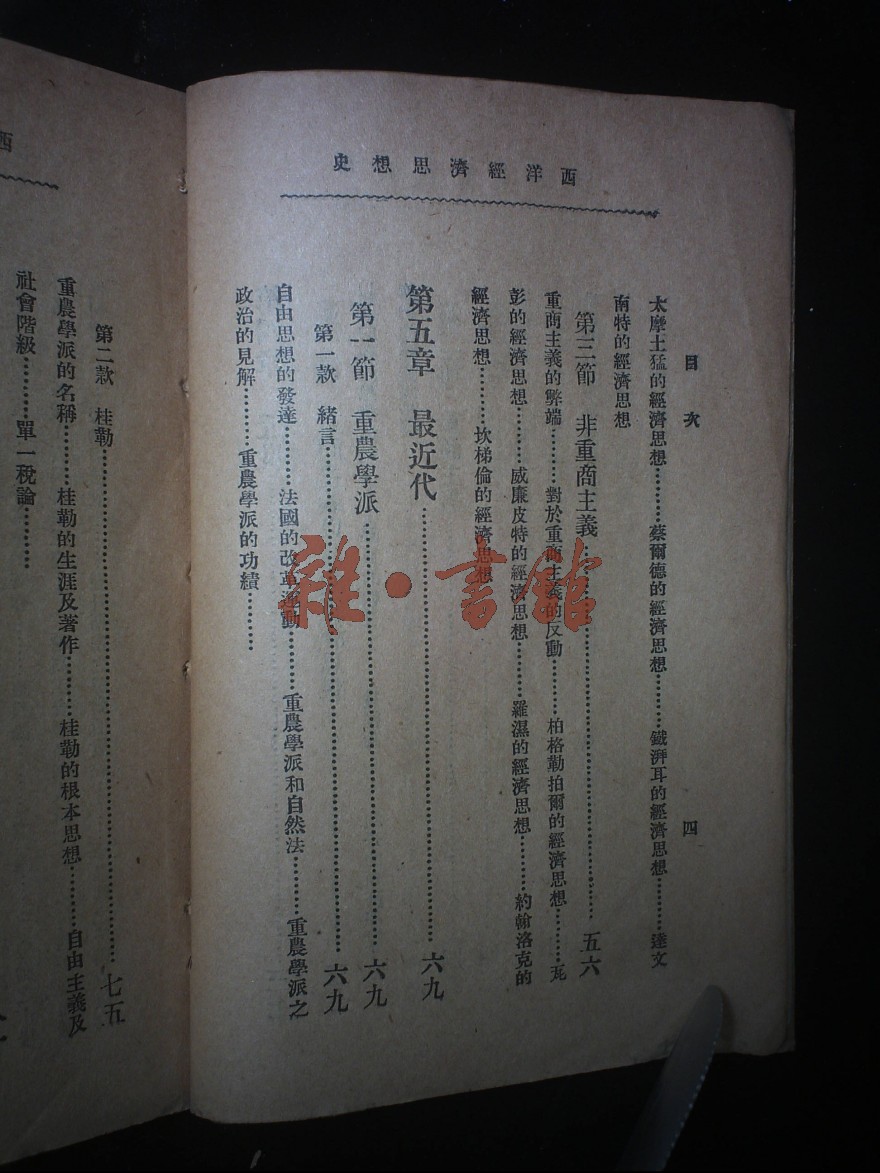 西洋經濟思想史
目次 四
太摩士猛的經濟思想………蔡爾德的經濟思想………鐵湃耳的經濟思想………達文
南特的經濟思想
第三節 非重商主義………五六
重商主義的弊端………對於重商主義的反動………柏格勒拍爾的經濟思想………瓦
彭的經濟思想………威廉皮特的經濟思想………羅濕的經濟思想………約翰洛克的
經濟思想………坎梯倫的經濟思想
第五章 最近代………六九
第一節 重農學派………六九
第一款 緒言………六九
自由思想的發達………法國的改革運動………重農學派和自然法………重農學派之
政治的見解………重農學派的功績………
第二款 桂勒………七五
重農學派的名稱………桂勒的生涯及著作………桂勒的根本思想………自由主義及
社會階級………單一稅論………
西
雜·書館